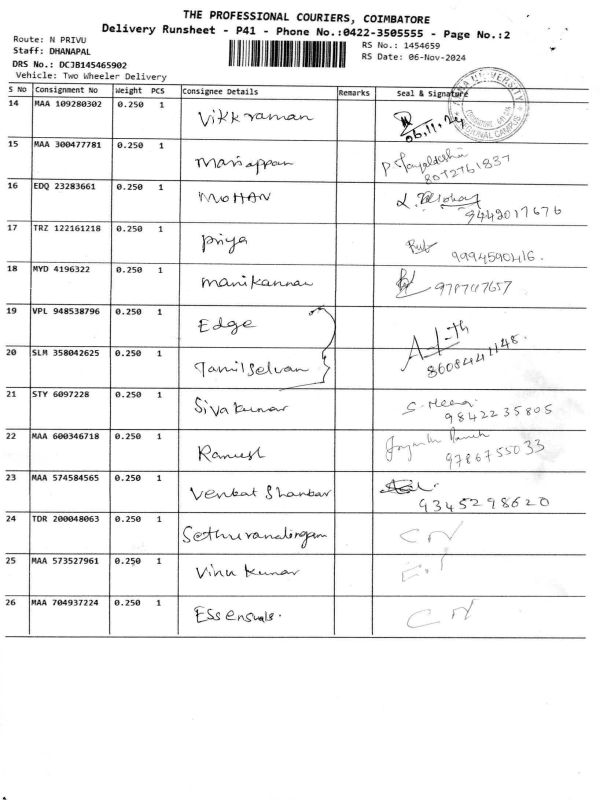 THE PROFESSIONAL COURIERS, COIMBATORE
Delivery Runsheet - P41 - Phone No.:0422-3505555 - Page No.:2
Route: N PRIVU
RS No.: 1454659
Staff: DHANAPAL
RS Date: 06-Nov-2024
DRS No.: DCJB145465902
Vehicle: Two Wheeler Delivery
S No Consignment No Weight PCS Consignee Details Remarks Seal & Signature
14 MAA 109280302 0.250 1 Vikkraman 06.11.24
15 MAA 300477781 0.250 1 Mariappan 8072761837
16 EDQ 23283661 0.250 1 MOHAN 9442017676
17 TRZ 122161218 0.250 1 Priya 9994590416.
18 MYD 4196322 0.250 1 Manikannan
19 VPL 948538796 0.250 1 Edge
20 SLM 358042625 0.250 1 Tamilselvan 8608441148.
21 STY 6097228 0.250 1 Sivakumar S. Meena 9842235805
22 MAA 600346718 0.250 1 Ramesh 9786755033
23 MAA 574584565 0.250 1 Venkat Shankar 9345298620
24 TDR 200048063 0.250 1
25 MAA 573527961 0.250 1 Vinu Kumar
26 MAA 704937224 0.250 1 Essensuals.